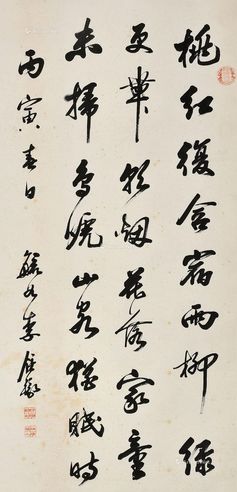 桃紅復含宿雨柳綠
更帶朝烟花落家童
未掃鳥嗁山客猶眠時
丙寅春日 毓如李鍾豫